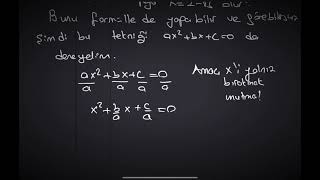 Bunu formülle de yapabilir ve görebilirsiniz
Şimdi bu tekniği ax²+bx+c=0 da
deneyelim.
ax²/a + bx/a + c/a = 0/a
Amaç x'i yalnız
bırakmak
x² + b/a x + c/a = 0